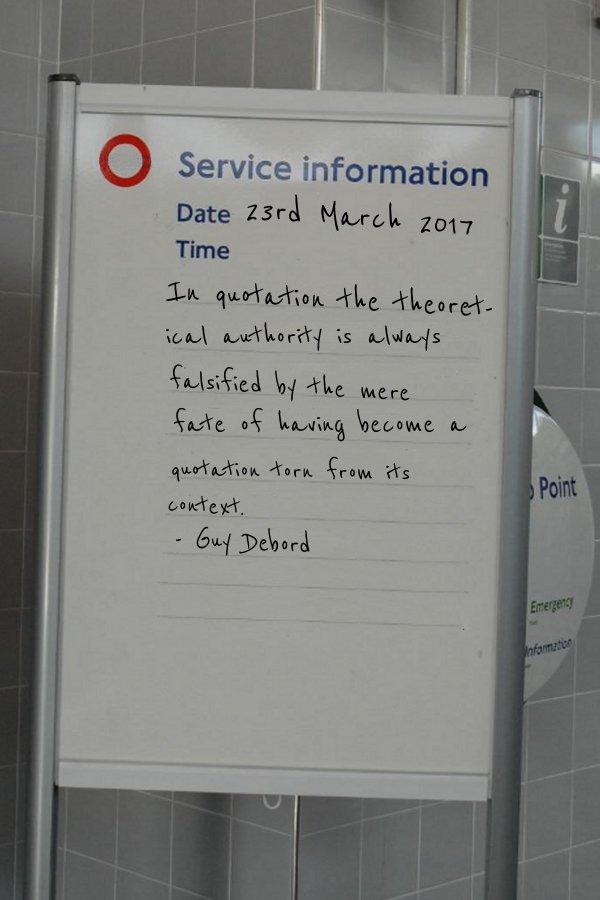 Service information
Date 23rd March 2017
Time
In quotation the theoret-
ical authority is always
falsified by the mere
fate of having become a
quotation torn from its
context.
- Guy Debord
i
Point
Emergency
Information